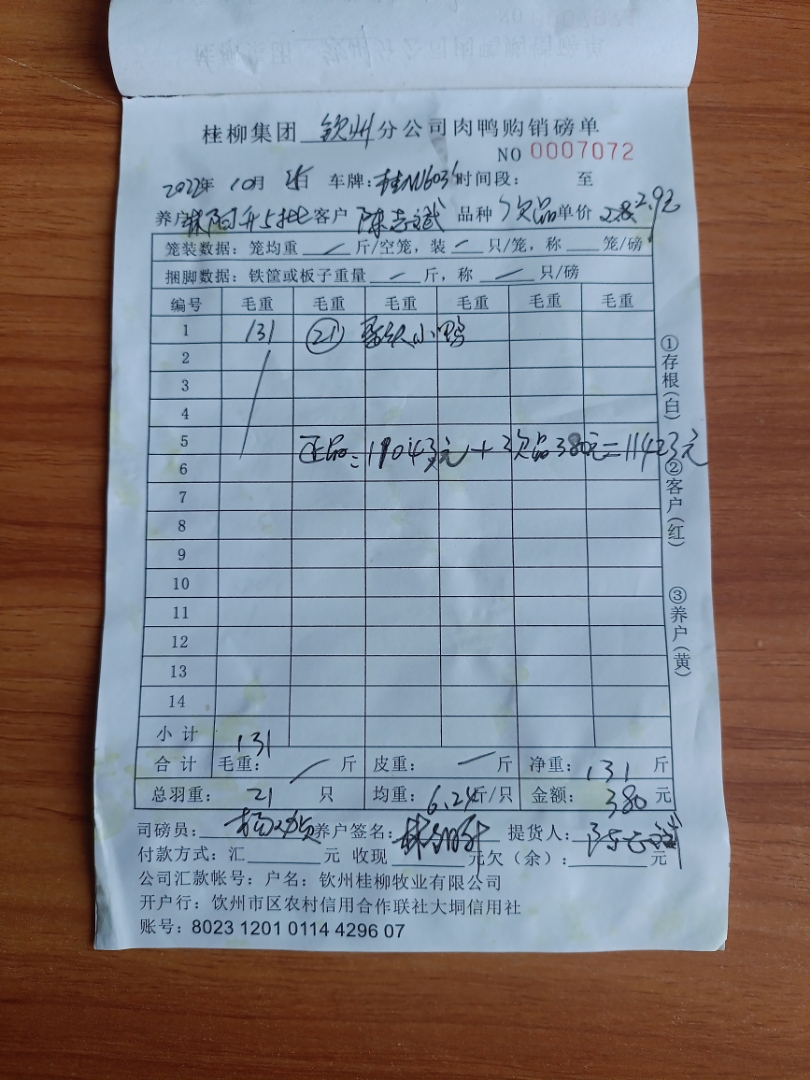 桂柳集团 钦州 分公司肉鸭购销磅单
NO 0007072
2022年 10月 日 车牌: 时间段: 至
养户 5批 客户 陈志斌 品种 次品 单价 2.9元
笼装数据: 笼均重 斤/空笼, 装 只/笼, 称 笼/磅
捆脚数据: 铁筐或板子重量 斤, 称 只/磅
编号 毛重 毛重 毛重 毛重 毛重 毛重
1 131 21 小鸭
2
3
4
5 正品: 11043元+次品380元=11423元
6
7
8
9
10
11
12
13
14
小计 131
合计 毛重: 斤 皮重: 斤 净重: 131 斤
总羽重: 21 只 均重: 6.24斤/只 金额: 380 元
司磅员: 养户签名: 提货人: 陈志斌
付款方式: 汇 元 收现 元欠(余): 元
公司汇款帐号: 户名: 钦州桂柳牧业有限公司
开户行: 钦州市区农村信用合作联社大垌信用社
账号: 8023 1201 0114 4296 07
①存根(白)
②客户(红)
③养户(黄)